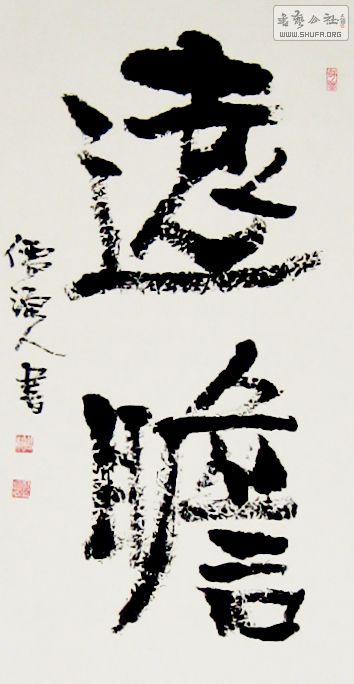 書藝公社
WWW.SHUFA.ORG
遠瞻
人書